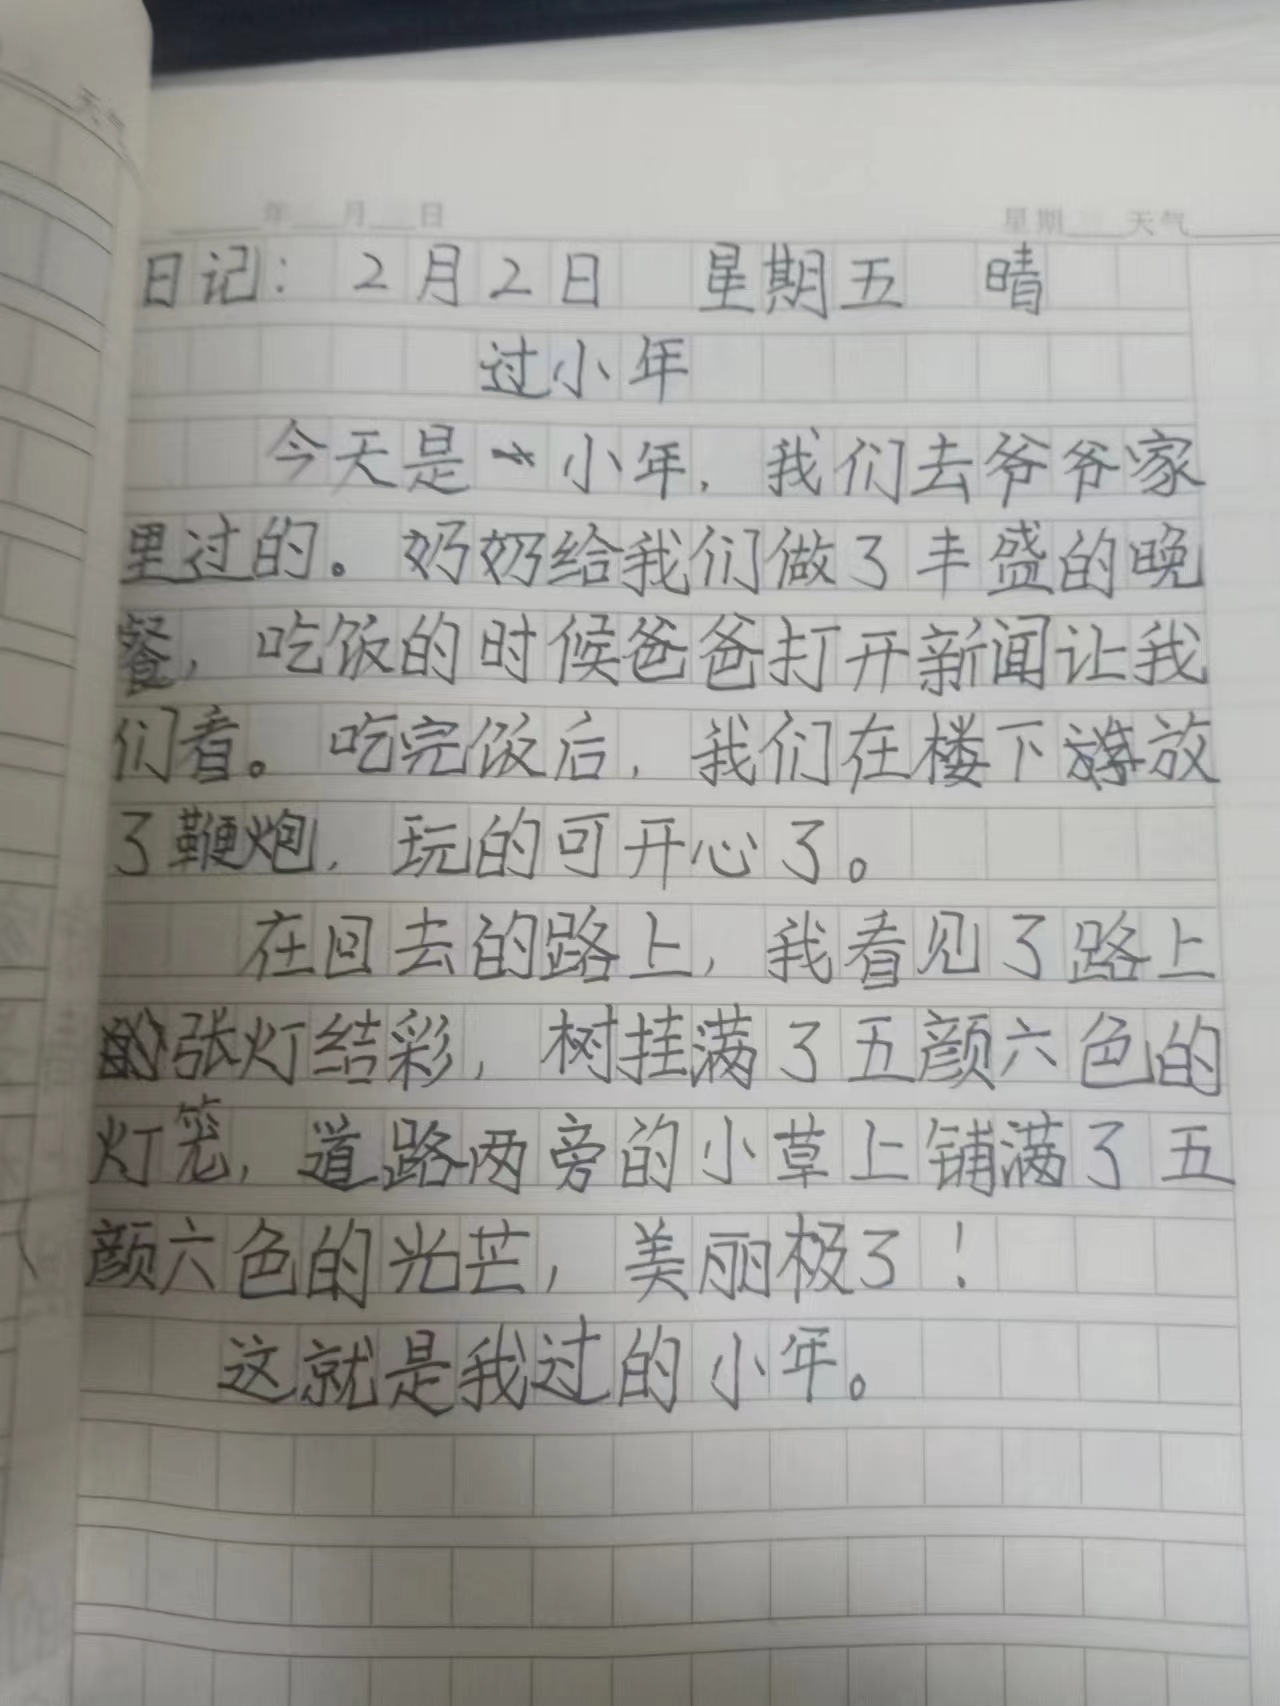 天气
年 月 日 星期 天气
日记：2月2日 星期五 晴
过小年
今天是小年，我们去爷爷家
里过的。奶奶给我们做了丰盛的晚
餐，吃饭的时候爸爸打开新闻让我
们看。吃完饭后，我们在楼下放
了鞭炮，玩的可开心了。
在回去的路上，我看见了路上
张灯结彩，树挂满了五颜六色的
灯笼，道路两旁的小草上铺满了五
颜六色的光芒，美丽极了！
这就是我过的小年。